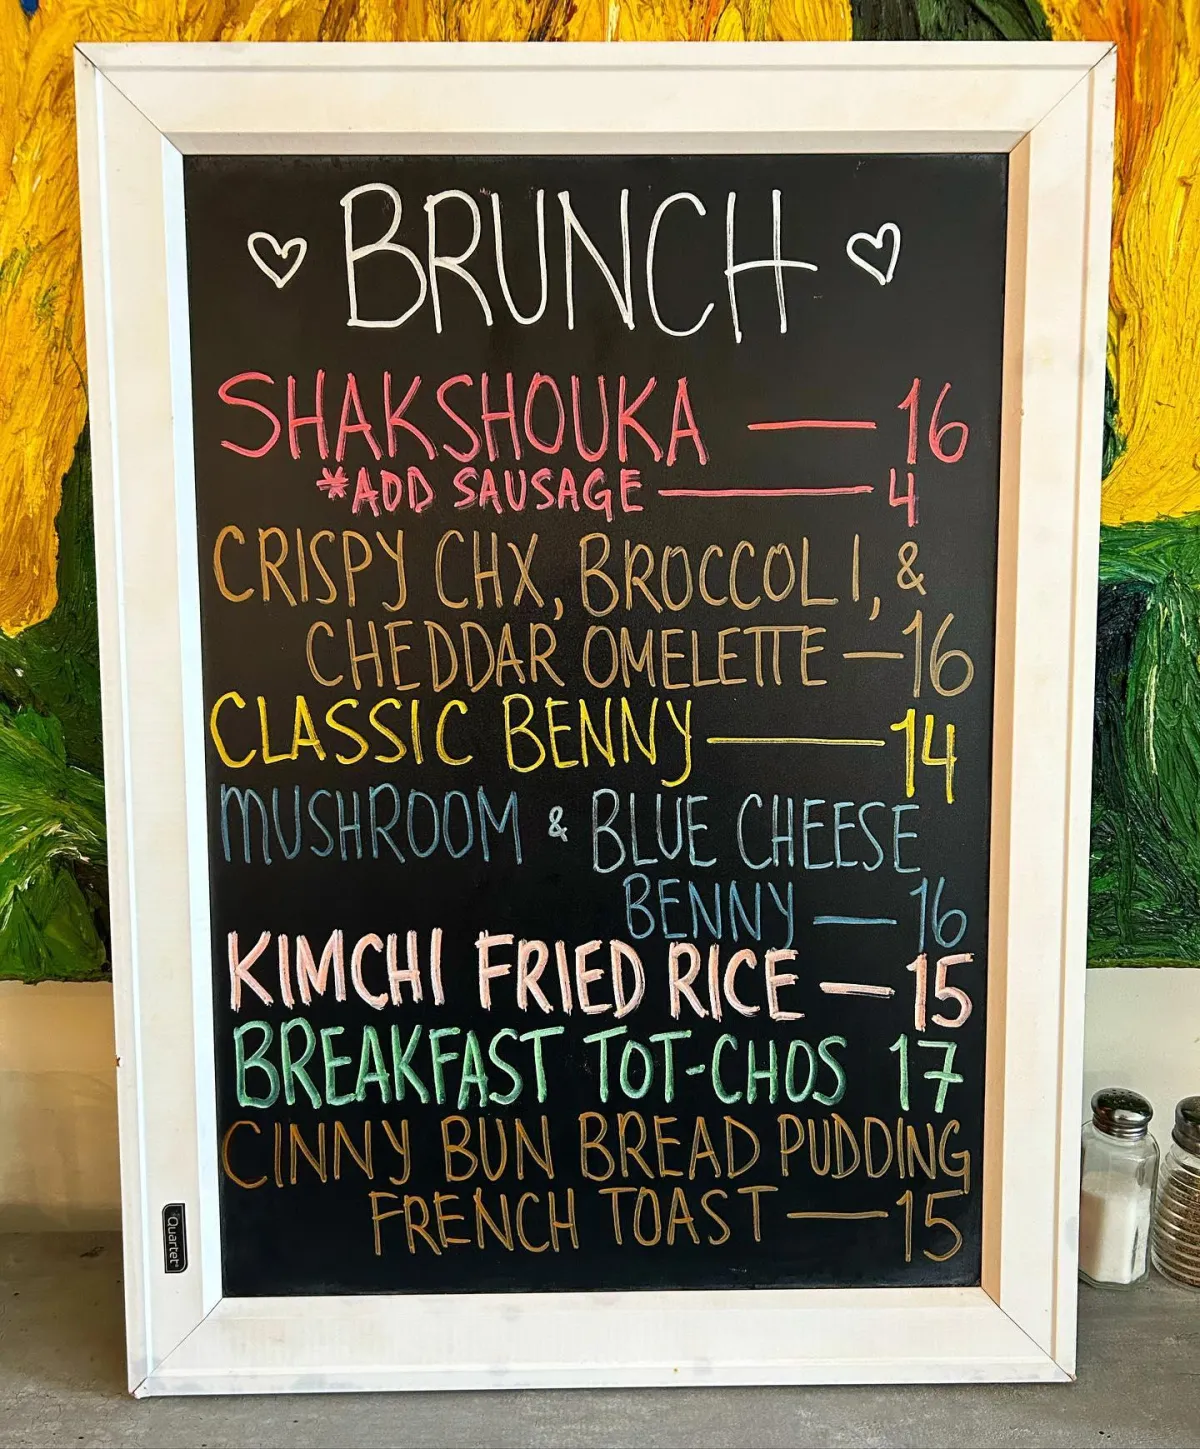 ♡ BRUNCH ♡
SHAKSHOUKA — 16
*ADD SAUSAGE — 4
CRISPY CHX, BROCCOLI, &
CHEDDAR OMELETTE — 16
CLASSIC BENNY — 14
MUSHROOM & BLUE CHEESE
BENNY — 16
KIMCHI FRIED RICE — 15
BREAKFAST TOT-CHOS 17
CINNY BUN BREAD PUDDING
FRENCH TOAST — 15
Quartet